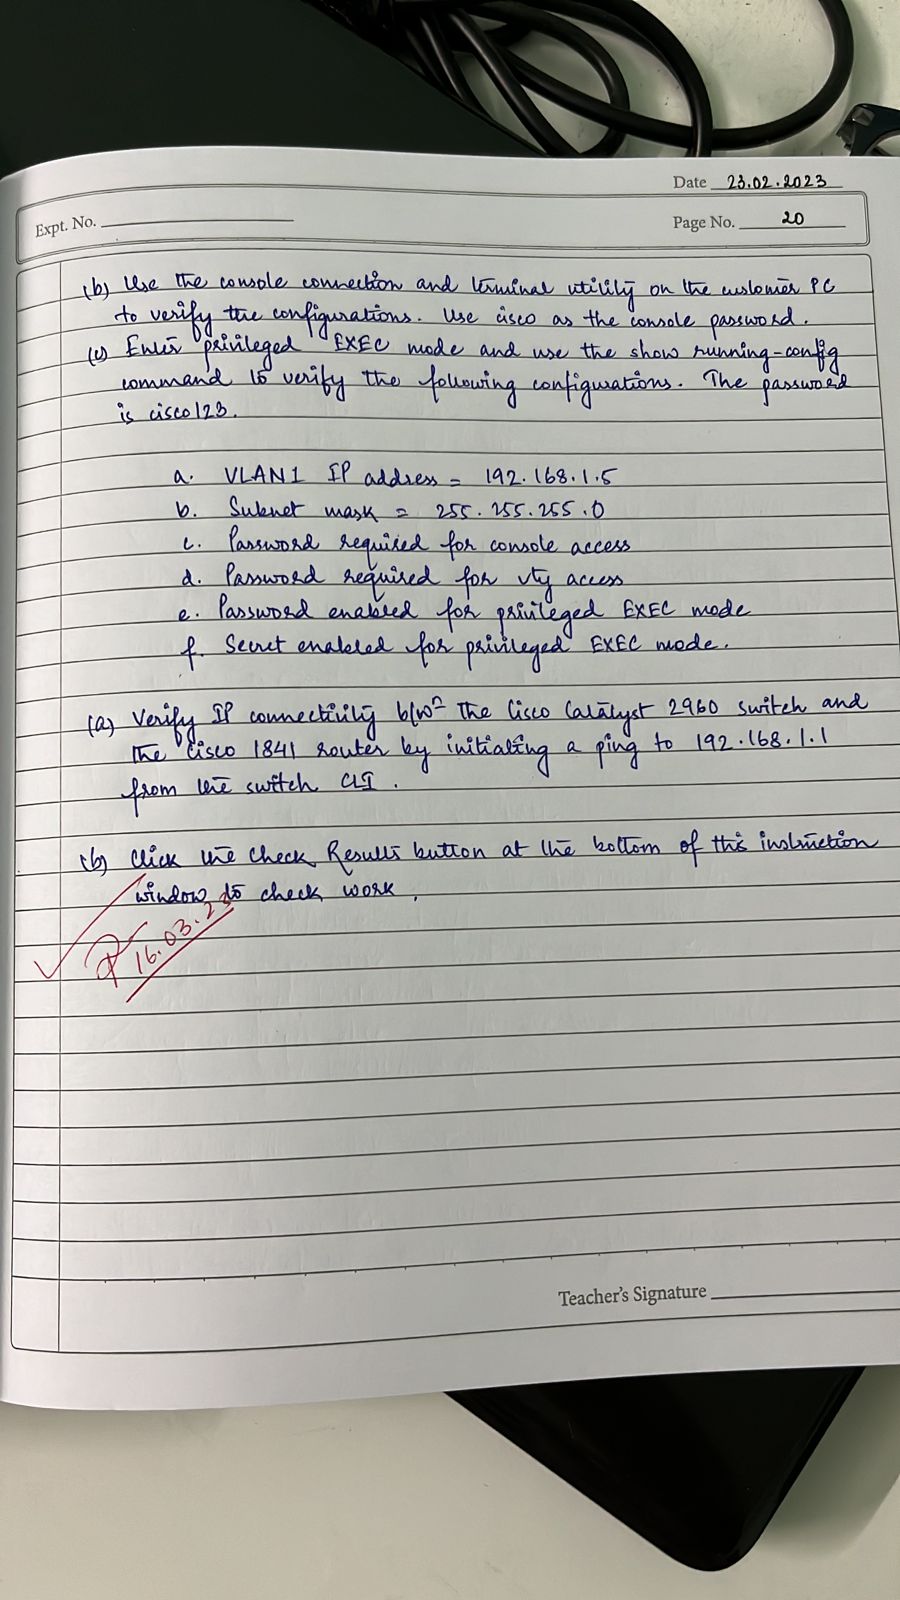 Date 23.02.2023
Expt. No.
Page No. 20
(b) Use the console connection and terminal utility on the customer PC
to verify the configurations. Use cisco as the console password.
(c) Enter privileged EXEC mode and use the show running-config
command to verify the following configurations. The password
is cisco123.
a. VLAN1 IP address = 192.168.1.5
b. Subnet mask = 255.255.255.0
c. Password required for console access
d. Password required for vty access
e. Password enabled for privileged EXEC mode
f. Secret enabled for privileged EXEC mode.
(a) Verify IP connectivity b/wⁿ the Cisco Catalyst 2960 switch and
the Cisco 1841 router by initiating a ping to 192.168.1.1
from the switch CLI.
(b) Click the Check Results button at the bottom of this instruction
window to check work.
16.03.23
Teacher's Signature